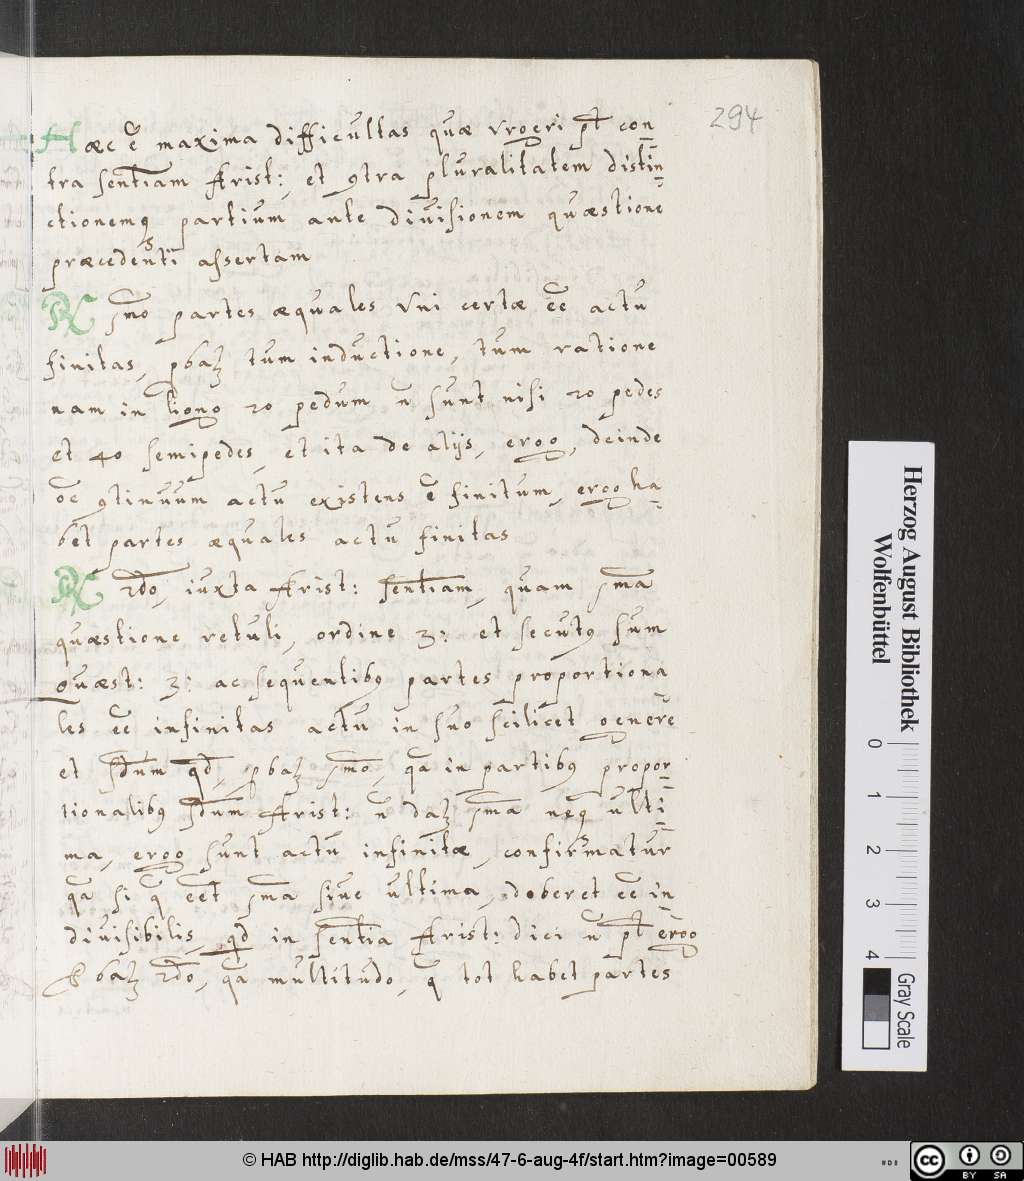 294
Hæc ẽ maxima difficultas quæ vrgeri pt̃ con-
tra sentiam Arist:, et ꝯtra pluralitatem distin-
ctionemq partium ante diuisionem quæstione
præcedenti assertam
R pmo partes æquales vni certæ eẽ actu
finitas, pbaꝫ tum inductione, tum ratione
nam in ligno 20 pedum ñ sunt nisi 20 pedes
et 40 semipedes, et ita de alijs, ergo, deinde
oẽ ꝯtinuum actu existens ẽ finitum, ergo ha-
bet partes æquales actu finitas
R 2do, iuxta Arist: sentiam, quam pma
quæstione retuli, ordine 3: et secutꝰ sum
quæst: 3: ac sequentibꝰ partes proportiona-
les eẽ infinitas actu in suo scilicet genere
et sdum qd, pbaꝫ pmo, qa in partibꝰ propor-
tionalibꝰ sdum Arist: ñ daꝫ pma neq ulti-
ma, ergo sunt actu infinitæ, confirmatur
qa si q eet pma siue ultima, deberet eẽ in-
diuisibilis, qd in sentia Arist: dici ñ pt̃ ergo
Pbaꝫ 2do, qa multitudo, q̃ tot habet partes
Herzog August Bibliothek
Wolfenbüttel
0 1 2 3 4
Gray Scale
© HAB http://diglib.hab.de/mss/47-6-aug-4f/start.htm?image=00589
cc BY SA